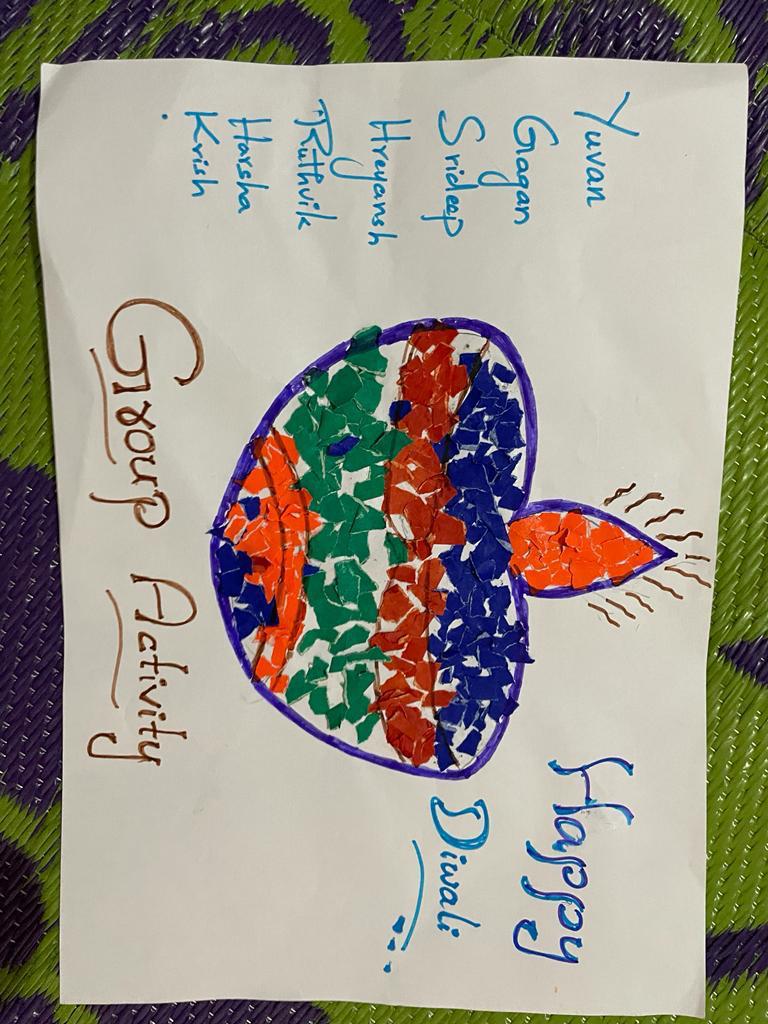 Yuvan
Gagan
Srideep
Hreyansh
Ruthvik
Harsha
Krish
Happy
Diwali
Group Activity